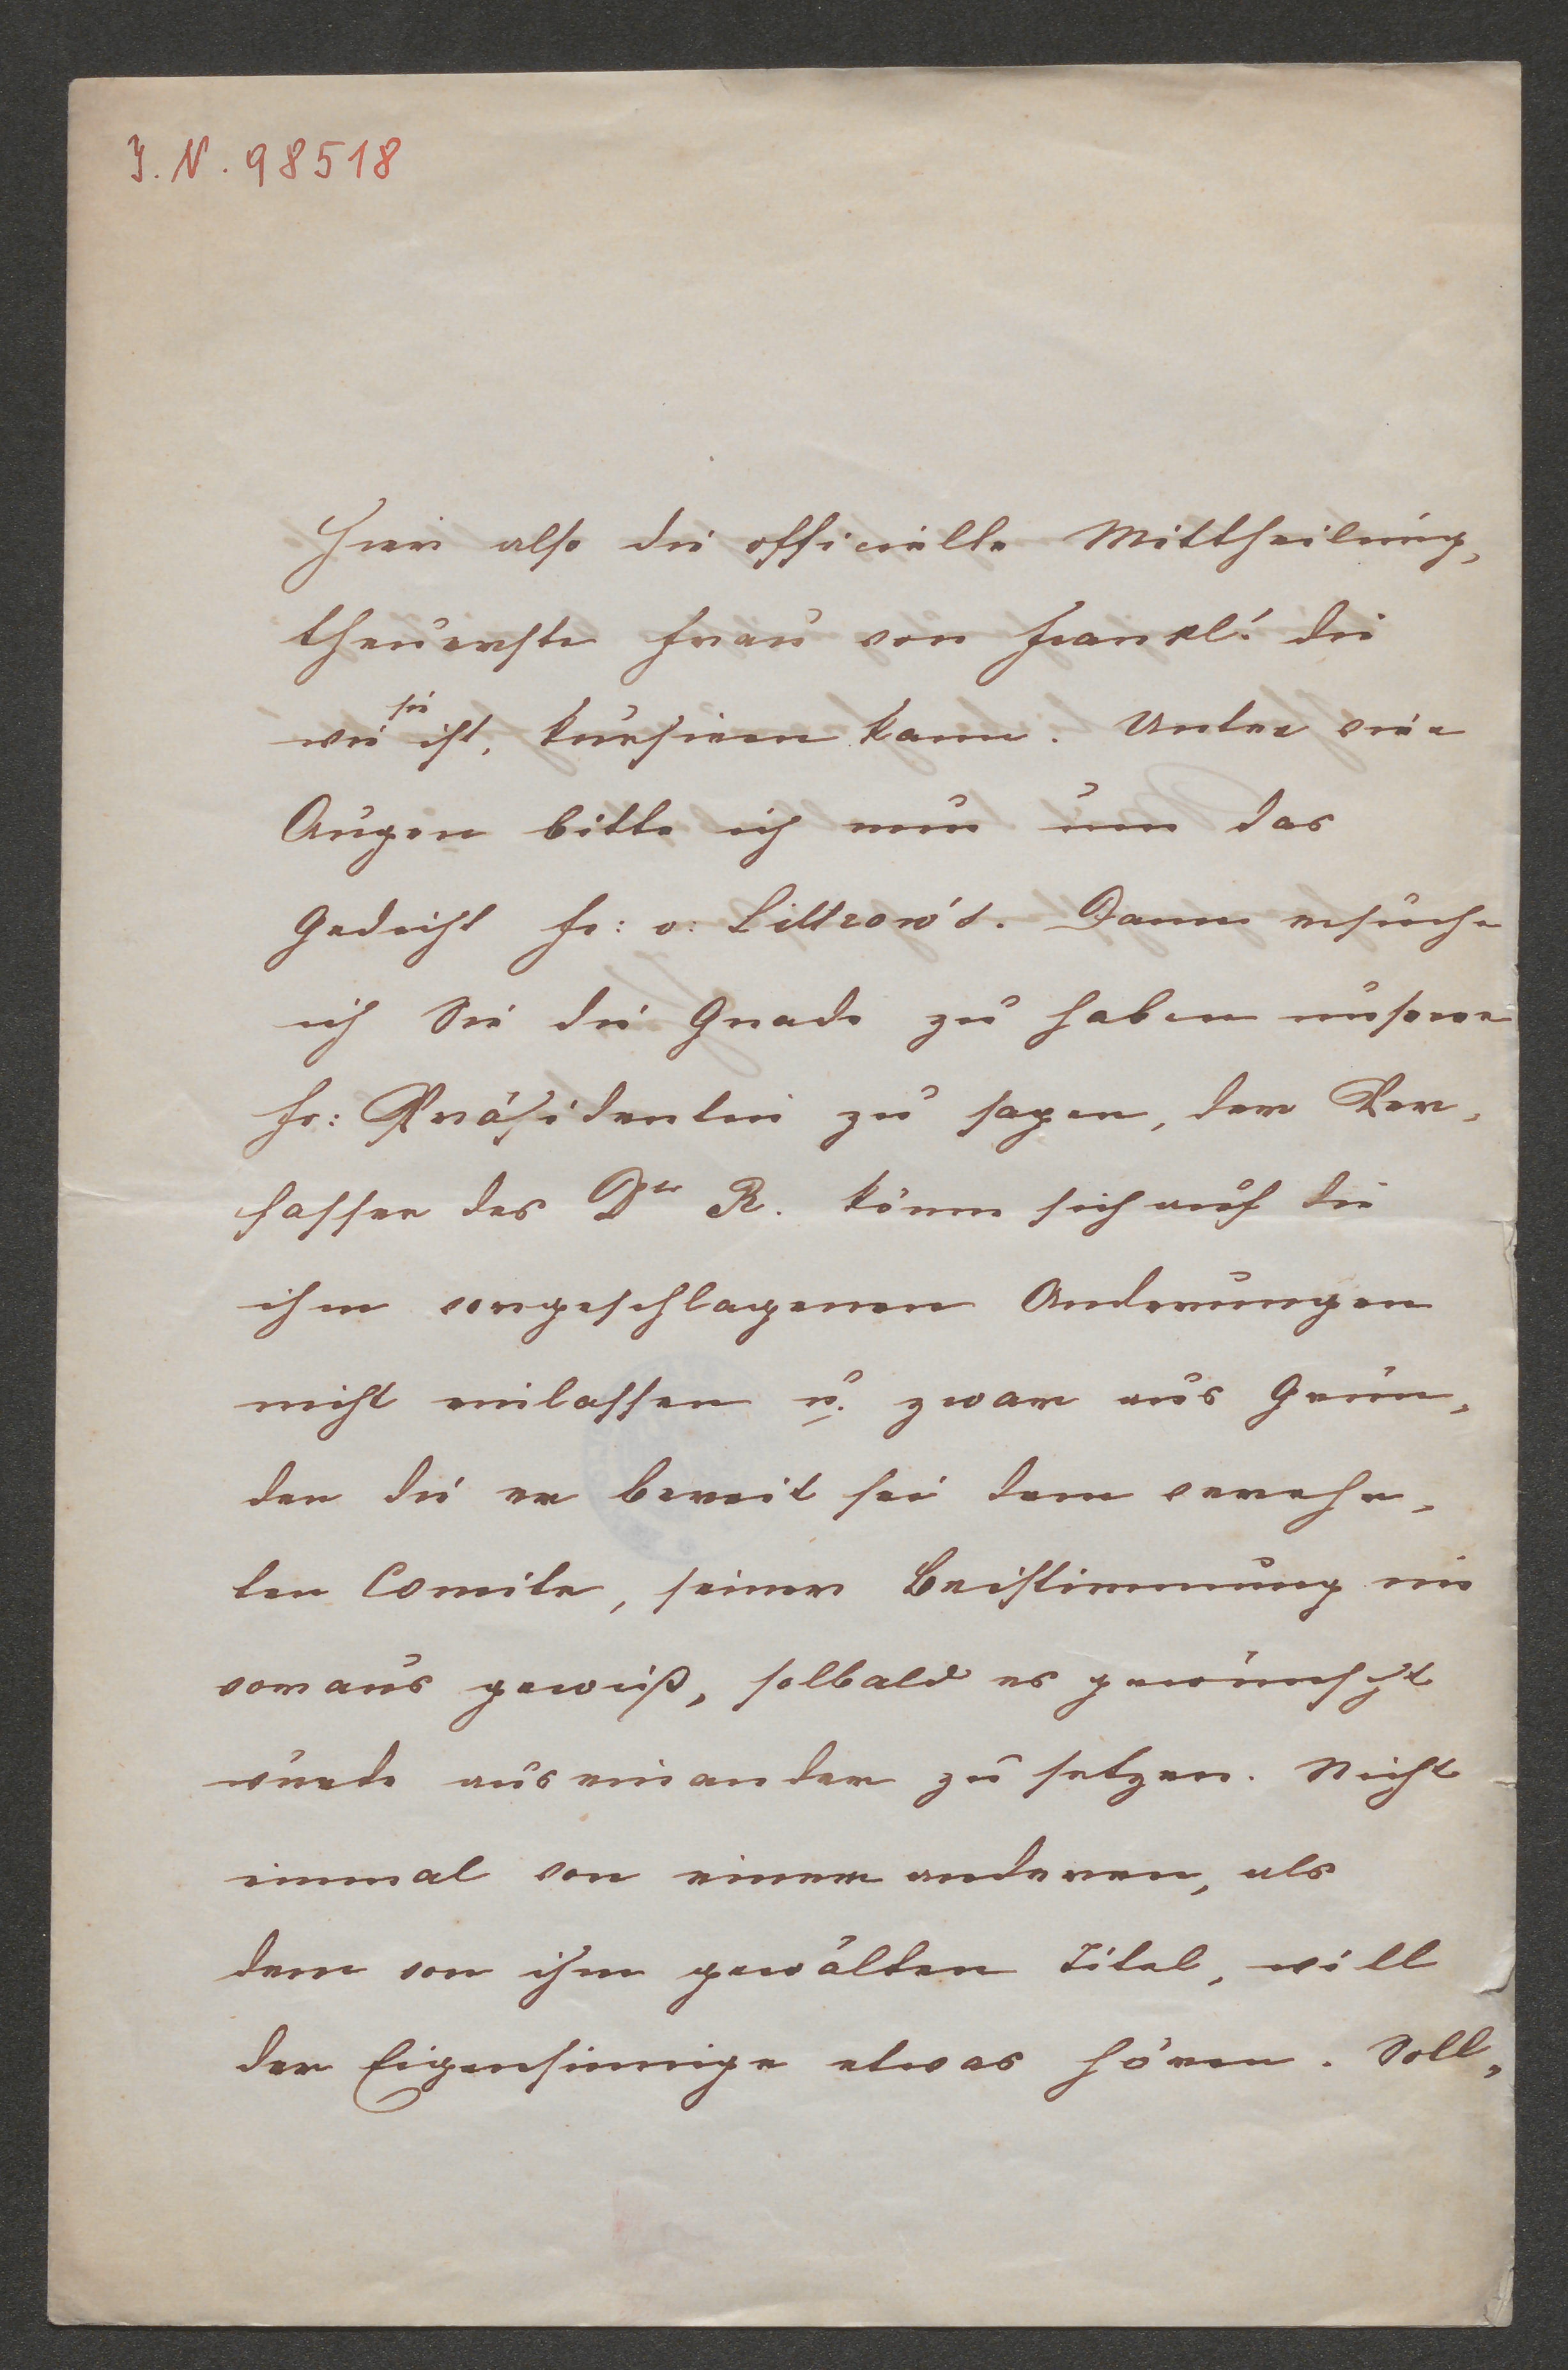 J. N. 98518
Hier also die officielle Mittheilung,
theuerste Frau von Frankl! die
wie sie ist, kursiren kann. Unter vier
Augen bitte ich nun um das
Gedicht Fr: v: Littrow's. Dann ersuche
ich Sie die Gnade zu haben unserer
Fr: Präsidentin zu sagen, der Ver-
fasser des Dr R. könne sich auf die
ihm vorgeschlagenen Anderungen
nicht einlassen u. zwar aus Grün-
den die er bereit sei dem verehr-
ten Comite, seiner Beistimmung im
voraus gewiß, sobald es gewünscht
würde auseinander zu setzen. Nicht
einmal von einem anderen, als
dem von ihm gewälten Titel, will
der Eigensinnige etwas hören. Soll-